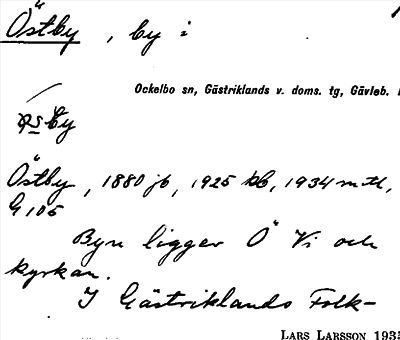 Östby, by i
Ockelbo sn, Gästriklands v. doms. tg, Gävleb.
Östby, 1880 jb, 1925 kb, 1934 mtl,
G 105
Byn ligger Ö Vi och
kyrkan.
I Gästriklands Folk-
LARS LARSSON 1935